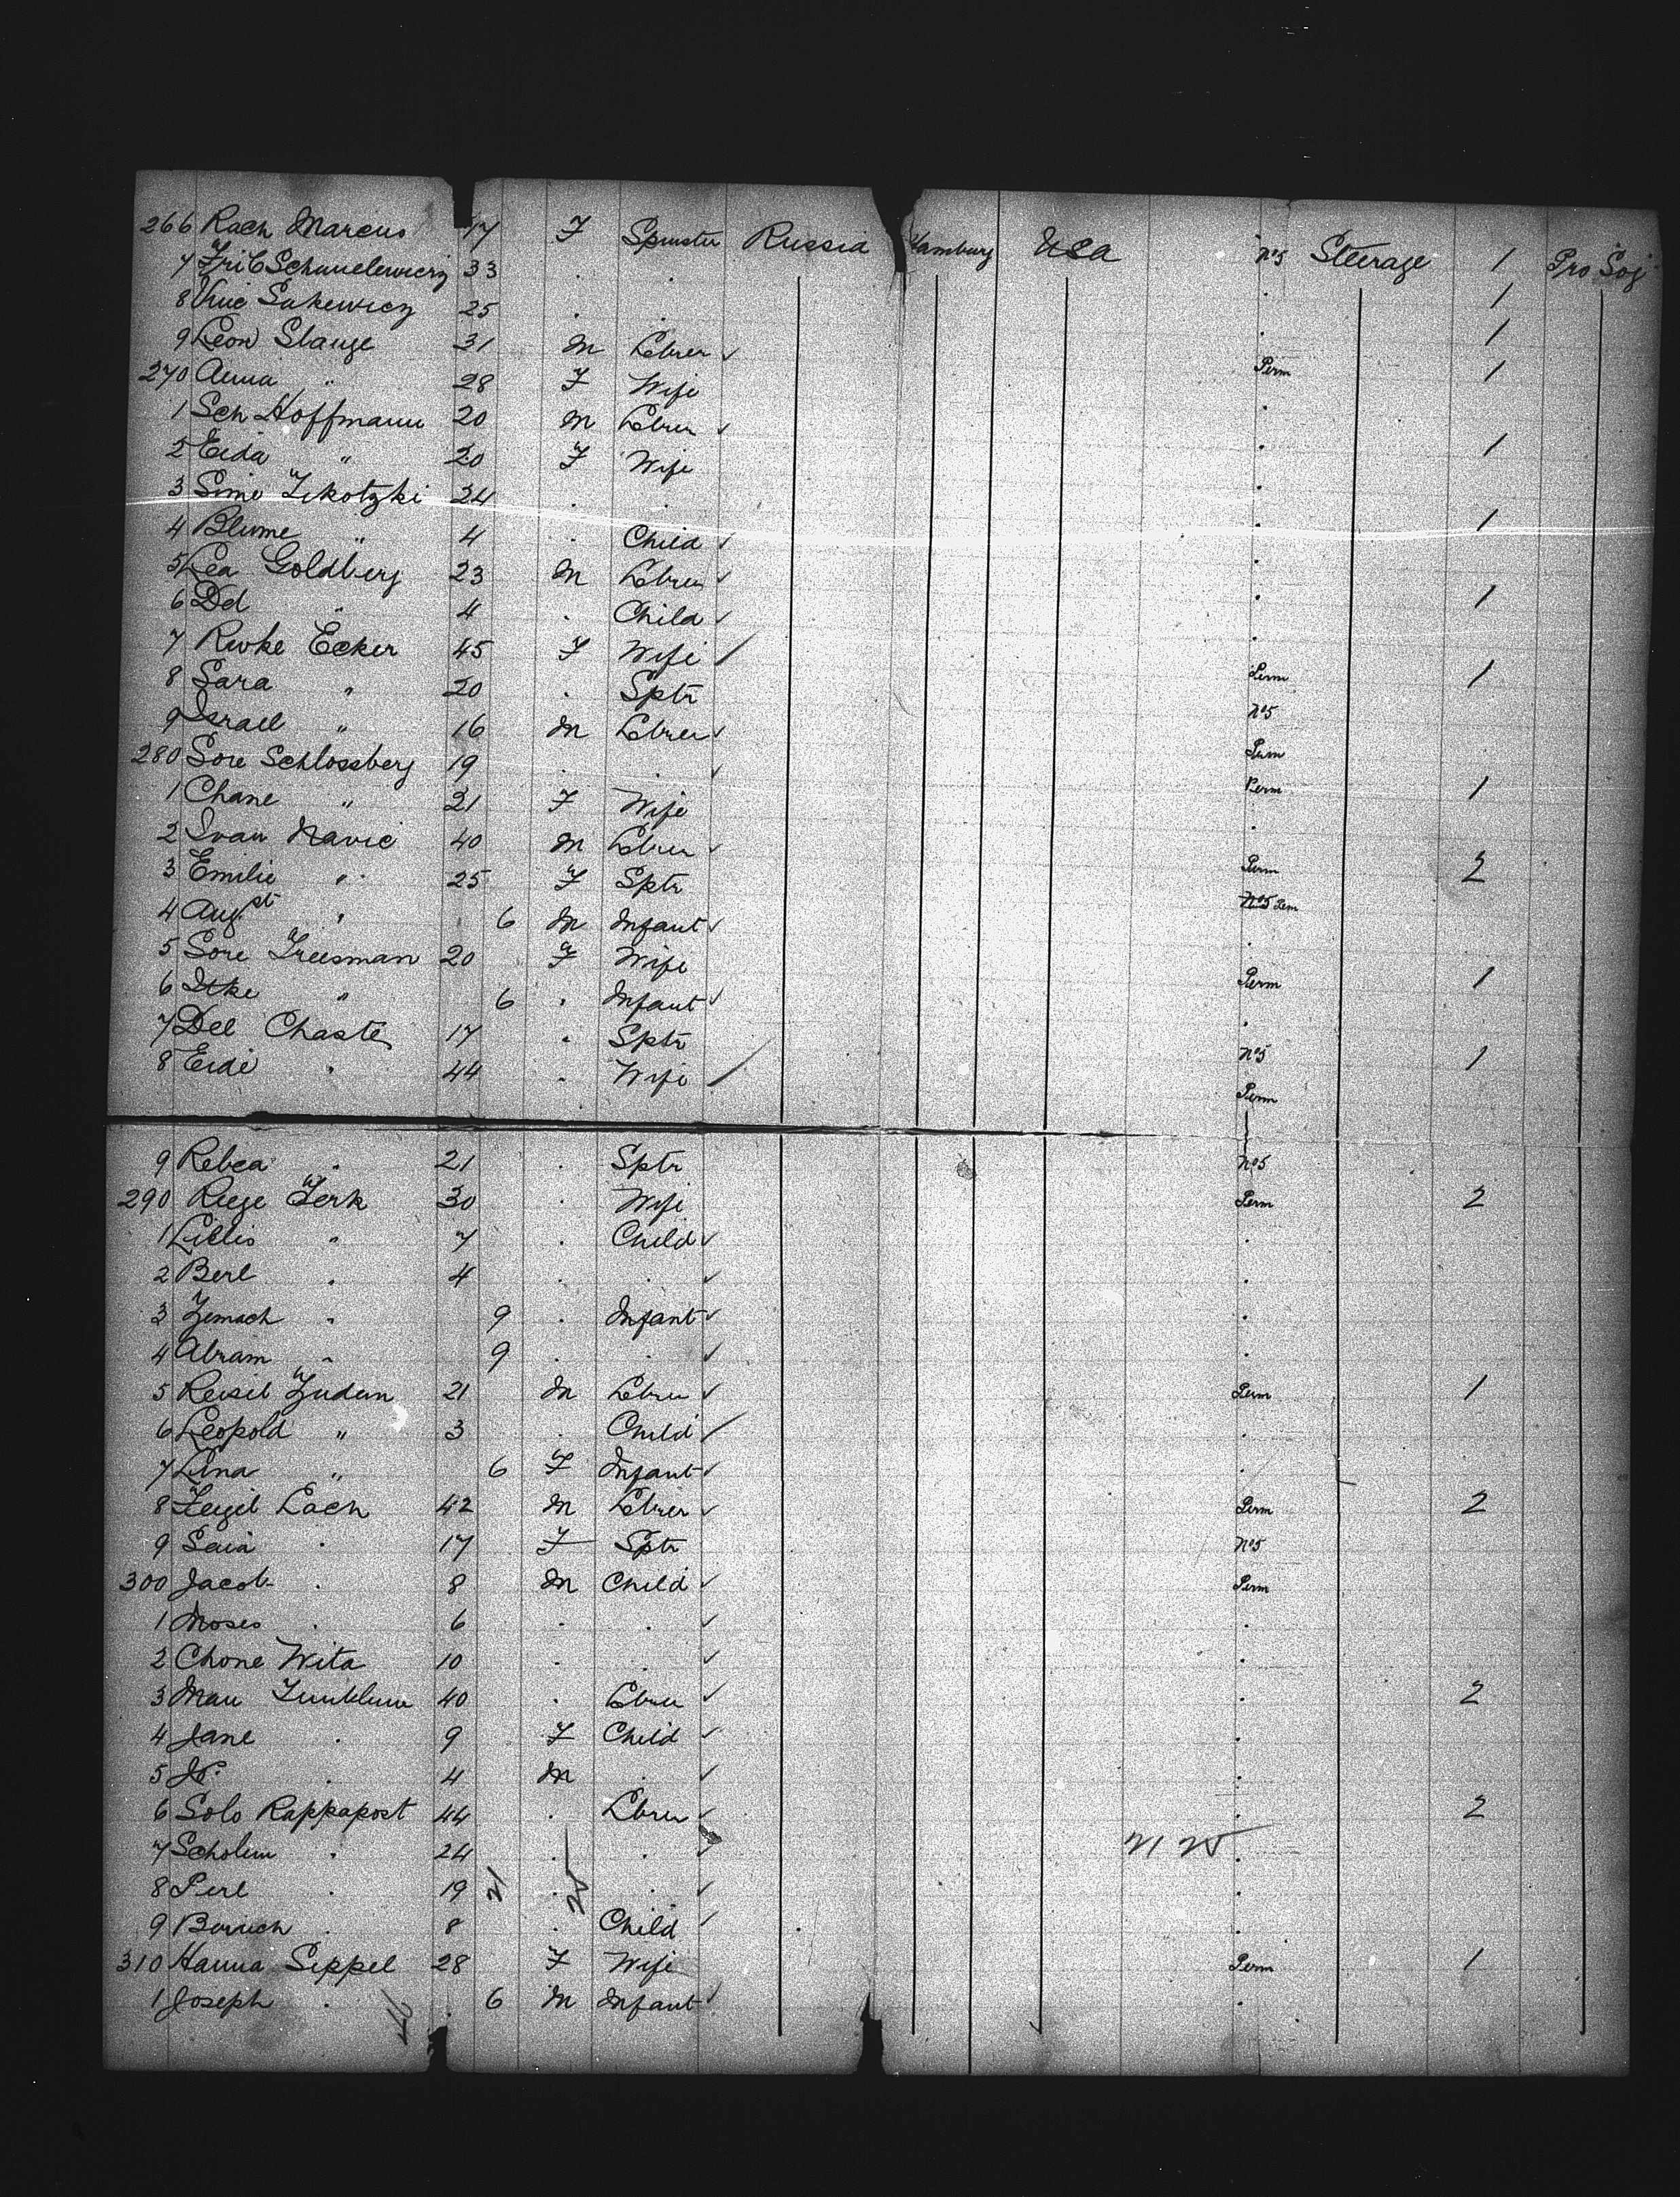 266 Rach Marcus 17 F Spinster Russia Hamburg USA No 5 Steerage 1 Pro Soj
7 33 . . . 1
8 25 . . . 1
9 Leon Stange 31 M Lebrer ✓ Perm 1
270 Anna " 28 F Wife .
1 Sch Hoffmann 20 M Lebrer ✓ . 1
2 Eida " 20 F Wife .
3 Sime 24 . . . 1
4 Blume " 4 . Child ✓ .
5 Lea Goldberg 23 M Lebrer ✓ . 1
6 Dd " 4 . Child ✓ .
7 Rwke Ecker 45 F Wife / Perm 1
8 Sara " 20 . Sptr No 5
9 Israel " 16 M Lebrer ✓ Perm
280 Sore Schlossberg 19 . . ✓ Perm 1
1 Chane " 21 F Wife .
2 Ivan Navic 40 M Lebrer ✓ Perm 2
3 Emilie " 25 F Sptr No 5 Perm
4 Augst " 6 M Infant ✓ .
5 Sore Freesman 20 F Wife Perm 1
6 Itke " 6 . Infant ✓ .
7 Del Chaste 17 . Sptr No 5 1
8 Eide " 44 . Wife / Perm
9 Rebca . 21 . Sptr No 5
290 30 . Wife Perm 2
1 " 7 . Child ✓ .
2 Berl . 4 . . ✓ .
3 Zemach " 9 . Infant ✓ .
4 Abram " 9 . . ✓ .
5 Reisil 21 M Lebrer ✓ Perm 1
6 Leopold " 3 . Child / .
7 Lina " 6 F Infant ✓ .
8 Lach 42 M Lebrer ✓ Perm 2
9 . 17 F Sptr No 5
300 Jacob . 8 M Child ✓ Perm
1 Moses . 6 . . ✓ .
2 Chone Wita 10 . . ✓ .
3 Man 40 . Lbrer ✓ . 2
4 Jane . 9 F Child ✓ .
5 . 4 M . ✓ .
6 Solo Rappaport 44 . Lbrer ✓ . 2
7 Scholem . 24 . . ✓ .
8 Perl . 19 . . ✓ .
9 Baruch . 8 . Child ✓ .
310 Hanna Seppel 28 F Wife Perm 1
1 Joseph . 6 M Infant ✓ .